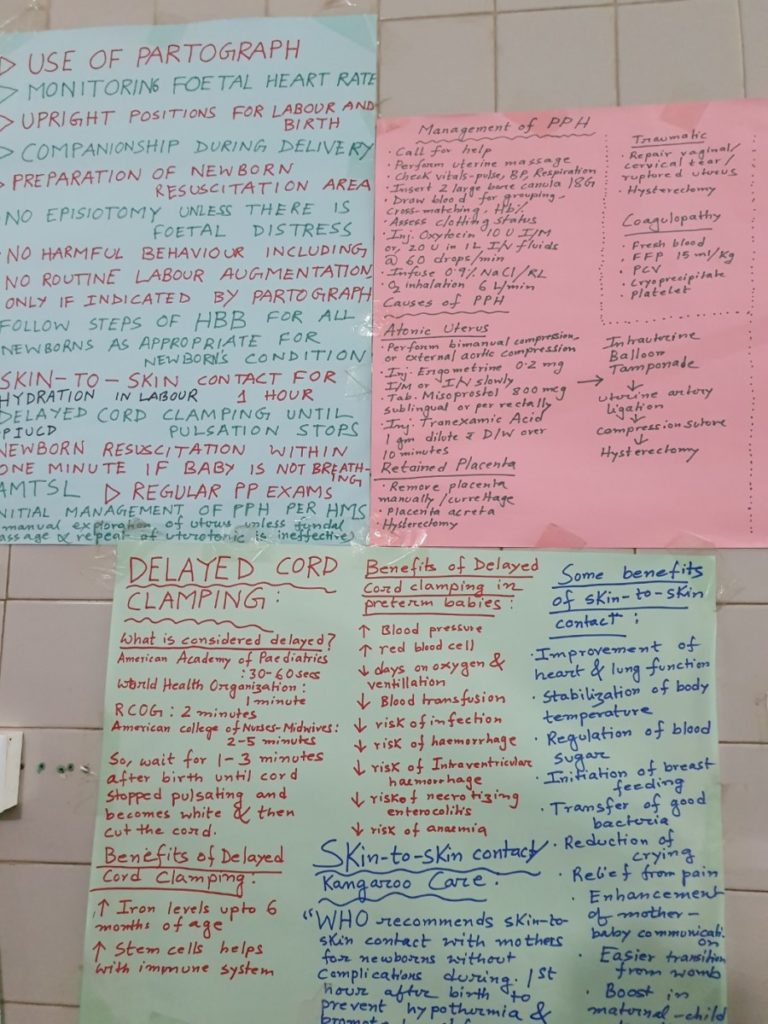 ▷ USE OF PARTOGRAPH
> MONITORING FOETAL HEART RATE
▷ UPRIGHT POSITIONS FOR LABOUR AND
BIRTH
> COMPANIONSHIP DURING DELIVERY
▷ PREPARATION OF NEWBORN
RESUSCITATION AREA
NO EPISIOTOMY UNLESS THERE IS
FOETAL DISTRESS
NO HARMFUL BEHAVIOUR INCLUDING
NO ROUTINE LABOUR AUGMENTATION
ONLY IF INDICATED BY PARTOGRAPH
FOLLOW STEPS OF HBB FOR ALL
NEWBORNS AS APPROPRIATE FOR
NEWBORN'S CONDITION
SKIN-TO-SKIN CONTACT FOR
HYDRATION IN LABOUR 1 HOUR
DELAYED CORD CLAMPING UNTIL
PIUCD PULSATION STOPS
NEWBORN RESUSCITATION WITHIN
ONE MINUTE IF BABY IS NOT BREATH-
ING
AMTSL ▷ REGULAR PP EXAMS
NITIAL MANAGEMENT OF PPH PER HMS
manual exploration of uterus unless fundal
assage & repeat of uterotonic is ineffective)
Management of PPH
· Call for help
· Perform uterine massage
· Check vitals-pulse, BP, Respiration
· Insert 2 large bore canula 18G
· Draw blood for grouping,
cross-matching, Hb%
· Assess clotting status
· Inj. Oxytocin 10 U I/M
or, 20 U in 1L IV fluids
@ 60 drops/min
· Infuse 0.9% NaCl/RL
· O2 inhalation 6 L/min
Causes of PPH
Atonic Uterus
· Perform bimanual compression,
or external aortic compression
· Inj. Ergometrine 0.2 mg
I/M or IV slowly
· Tab. Misoprostol 800 mcg
sublingual or per rectally
· Inj. Tranexamic Acid
1 gm dilute D/W over
10 minutes
Retained Placenta
· Remove placenta
manually/currettage
· Placenta acreta
· Hysterectomy
Traumatic
· Repair vaginal/
cervical tear/
ruptured uterus
· Hysterectomy
Coagulopathy
· Fresh blood
· FFP 15 ml/kg
· PCV
· Cryoprecipitate
· Platelet
→ Intrauterine
Balloon
Tamponade
↓
uterine artery
ligation
↓
compression suture
↓
Hysterectomy
DELAYED CORD
CLAMPING:
What is considered delayed?
American Academy of Paediatrics
: 30-60 secs
World Health Organization:
1 minute
RCOG: 2 minutes
American college of Nurses-Midwives:
2-5 minutes
So, wait for 1-3 minutes
after birth until cord
stopped pulsating and
becomes white & then
cut the cord.
Benefits of Delayed
Cord Clamping:
↑ Iron levels upto 6
months of age
↑ Stem cells helps
with immune system
Benefits of Delayed
Cord clamping in
preterm babies:
↑ Blood pressure
↑ red blood cell
↓ days on oxygen &
ventillation
↓ Blood transfusion
↓ risk of infection
↓ risk of haemorrhage
↓ risk of Intraventricular
haemorrhage
↓ risk of necrotizing
enterocolitis
↓ risk of anaemia
Skin-to-skin contact/
Kangaroo Care.
"WHO recommends skin-to-
skin contact with mothers
for newborns without
complications during 1st
hour after birth to
prevent hypothermia &
Some benefits
of skin-to-skin
contact:
· Improvement of
heart & lung function
· Stabilization of body
temperature
· Regulation of blood
sugar
· Initiation of breast
feeding
· Transfer of good
bacteria
· Reduction of
crying
· Relief from pain
· Enhancement
of mother-
baby communicati
on
· Easier transition
from womb
· Boost in
maternal-child